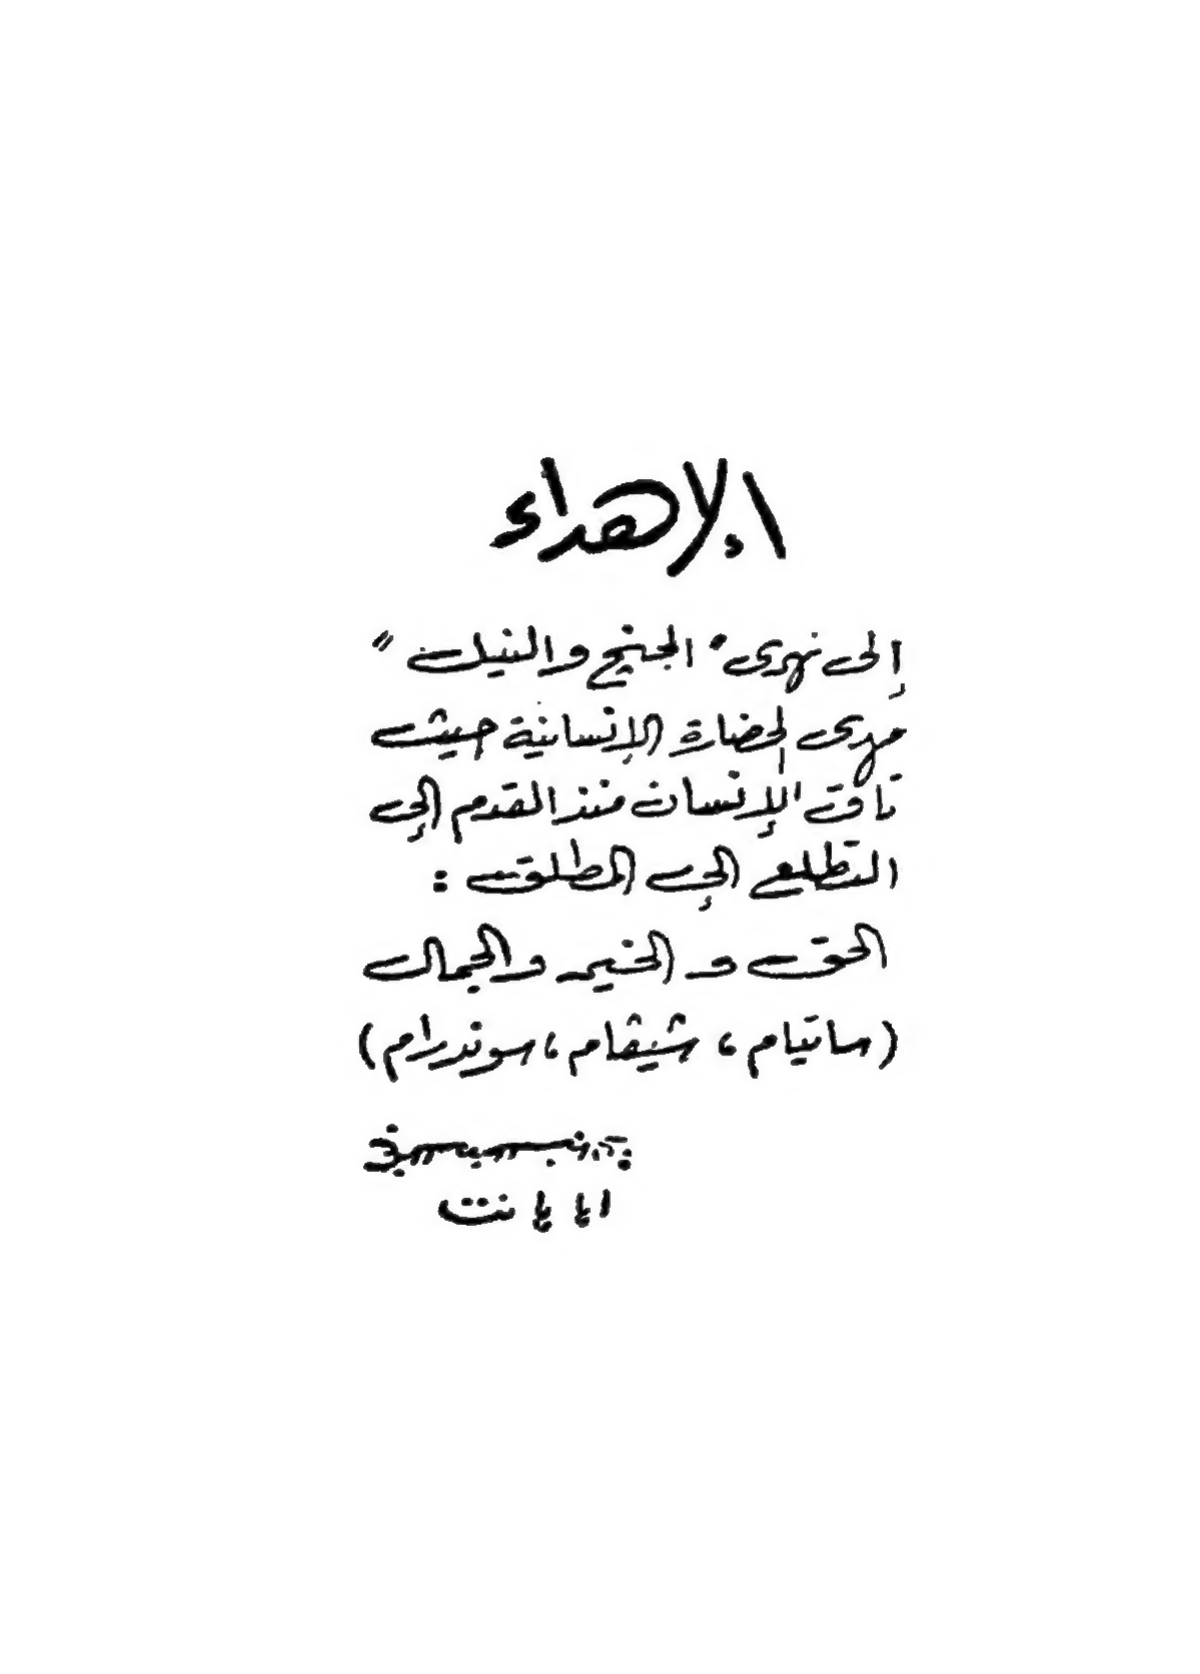 الإهداء
إلى نهرى " الجنج والنيل "
مهدى الحضارة الإنسانية حيث
تاق الإنسان منذ القدم إلى
التطلع إلى المطلق :
الحق و الخير والجمال
(ساتيام ، شيڤام ، سوندرام)
ابا بانت